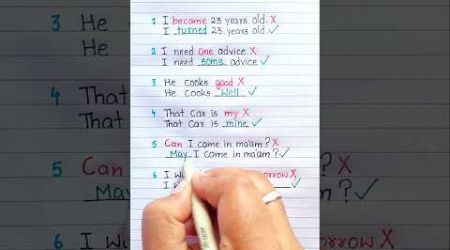 1 I became 23 years old. X
I turned 23 years old ✓
2 I need one advice X
I need some advice ✓
3 He cooks good X
He cooks well ✓
4 That Car is my X
That Car is mine ✓
5 Can I come in ma'am? X
May I come in ma'am? ✓
6 I
I